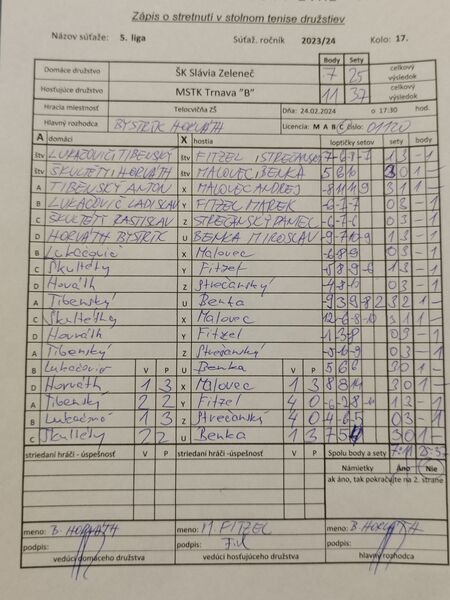 Zápis o stretnutí v stolnom tenise družstiev
Názov súťaže: 5. liga Súťaž. ročník 2023/24 Kolo: 17.
Body Sety
Domáce družstvo ŠK Slávia Zeleneč 7 25 celkový výsledok
Hosťujúce družstvo MSTK Trnava "B" 11 37 celkový výsledok
Hracia miestnosť Telocvičňa ZŠ Dňa: 24.02.2024 o 17:30 hod.
Hlavný rozhodca BYSTRÍK HORVÁTH Licencia: M A B C číslo: 01120
A domáci X hostia loptičky setov sety body
štv LUKAČOVIČ TIBENSKÝ štv FITZEL STREČANSKÝ 1 3 - 1
štv ŠKULTÉTI HORVÁTH štv MALOVEC BENKA 5 6 10 3 0 1 -
A TIBENSKÝ ANTON X MALOVEC ANDREJ 3 1 1 -
B LUKAČOVIČ LADISLAV Y FITZEL MAREK 0 3 - 1
C ŠKULTÉTI RASTISLAV Z STREČANSKÝ 0 3 - 1
D HORVÁTH BYSTRÍK U BENKA MIROSLAV 1 3 - 1
B Lukačovič X Malovec -6-8-9 0 3 - 1
C Škultéty Y Fitzel 1 3 - 1
D Horváth Z Strečanský -4-8-10 0 3 - 1
A Tibenský U Benka -9 3 9-8 2 3 2 1 -
C Škultéthy X Malovec 12-6-8-10 3 1 - 1
D Horváth Y Fitzel -1-3-8 0 3 - 1
A Tibenský Z Strečanský -5-10-9 0 3 - 1
B Lukačovič V P U Benka V P 5 6 6 3 0 1 -
D Horváth 1 3 X Malovec 1 3 8 8 14 3 0 1 -
A Tibenský 2 2 Y Fitzel 4 0 1 3 - 1
B Lukačovič 1 3 Z Strečanský 4 0 -4-6-5 0 3 - 1
C Škultéty 2 2 U Benka 1 3 7 5 4 3 0 1 -
striedaní hráči - úspešnosť V P striedaní hráči - úspešnosť V P Spolu body a sety 7:11 25:37
Námietky Áno Nie
ak áno, tak pokračujte na 2. strane
meno: B. HORVÁTH meno: M. FITZEL B. HORVÁTH
podpis: podpis:
vedúci domáceho družstva vedúci hosťujúceho družstva hlavný rozhodca